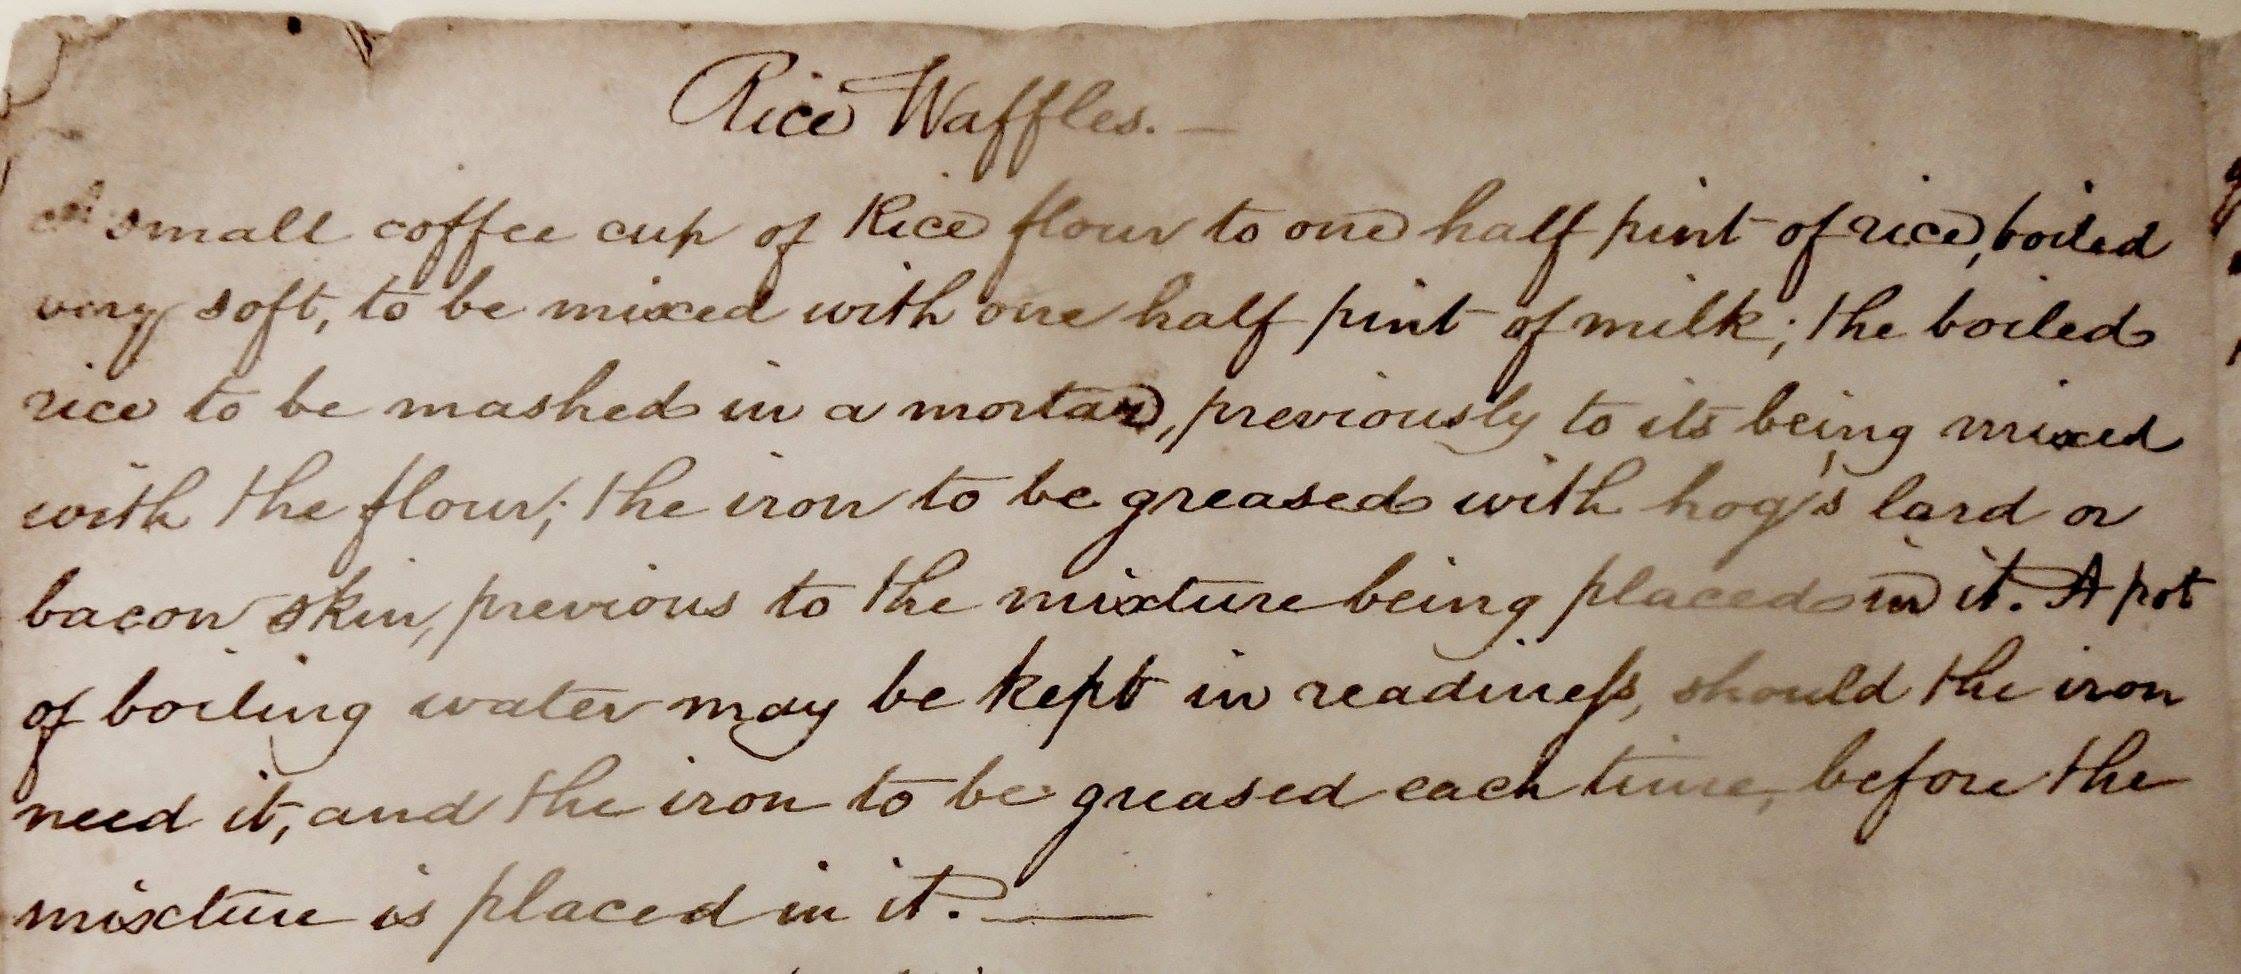 Rice Waffles. —
A small coffee cup of Rice flour to one half pint of rice, boiled
very soft, to be mixed with one half pint of milk; the boiled
rice to be mashed in a mortar, previously to its being mixed
with the flour; the iron to be greased with hog's lard or
bacon skin, previous to the mixture being placed in it. A pot
of boiling water may be kept in readineſs, should the iron
need it, and the iron to be greased each time, before the
mixture is placed in it. —